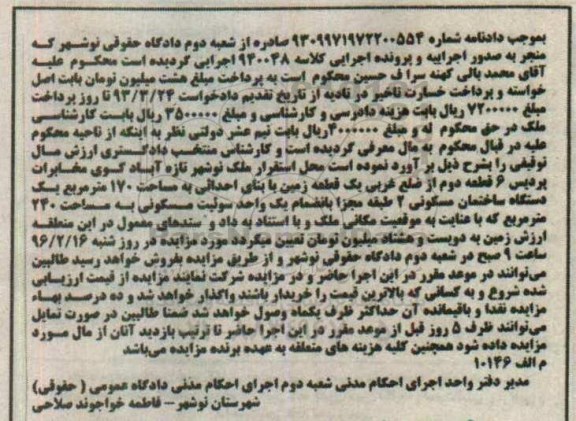 بموجب دادنامه شماره ۹۳۰۹۹۷۱۹۷۲۲۰۰۵۵۴ صادره از شعبه دوم دادگاه حقوقی نوشهر که
منجر به صدور اجراییه و پرونده اجرایی کلاسه ۹۴۰۰۴۸ اجرایی گردیده است محکوم علیه
آقای محمد بالی کهنه سرا ف حسین محکوم است به پرداخت مبلغ هشت میلیون تومان بابت اصل
خواسته و پرداخت خسارت تاخیر در تادیه از تاریخ تقدیم دادخواست ۹۳/۳/۲۴ تا روز پرداخت
مبلغ ۷۲۰۰۰۰۰ ریال بابت هزینه دادرسی و کارشناسی و مبلغ ۳۵۰۰۰۰۰ ریال بابت کارشناسی
ملک در حق محکوم له و مبلغ ۴۰۰۰۰۰۰ ریال بابت نیم عشر دولتی نظر به اینکه از ناحیه محکوم
علیه در قبال محکوم به مال معرفی گردیده است و کارشناس منتخب دادگستری ارزش مال
توقیفی را بشرح ذیل بر آورد نموده است محل استقرار ملک نوشهر تازه آباد کوی مخابرات
پردیس ۶ قطعه دوم از ضلع غربی یک قطعه زمین با بنای احداثی به مساحت ۱۷۰ مترمربع یک
دستگاه ساختمان مسکونی ۲ طبقه مجزا بانضمام یک واحد سوئیت مسکونی به مساحت ۲۴۰
مترمربع که با عنایت به موقعیت مکانی ملک و با استناد به داد و ستدهای معمول در این منطقه
ارزش زمین به دویست و هشتاد میلیون تومان تعیین میگردد مورد مزایده در روز شنبه ۹۶/۲/۱۶
ساعت ۹ صبح در شعبه دوم دادگاه حقوقی نوشهر و از طریق مزایده بفروش خواهد رسید طالبین
می‌توانند در موعد مقرر در این اجرا حاضر و در مزایده شرکت نمایند مزایده از قیمت ارزیابی
شده شروع و به کسانی که بالاترین قیمت را خریدار باشند واگذار خواهد شد و ده درصد بهاء
مزایده نقدا و باقیمانده آن حداکثر ظرف یکماه وصول خواهد شد ضمنا طالبین در صورت تمایل
می‌توانند ظرف ۵ روز قبل از موعد مقرر در این اجرا حاضر تا ترتیب بازدید آنان از مال مورد
مزایده داده شود همچنین کلیه هزینه های متعلقه به عهده برنده مزایده می‌باشد
م الف ۱۰۱۴۶
مدیر دفتر واحد اجرای احکام مدنی شعبه دوم اجرای احکام مدنی دادگاه عمومی ( حقوقی)
شهرستان نوشهر – فاطمه خواجوند صلاحی